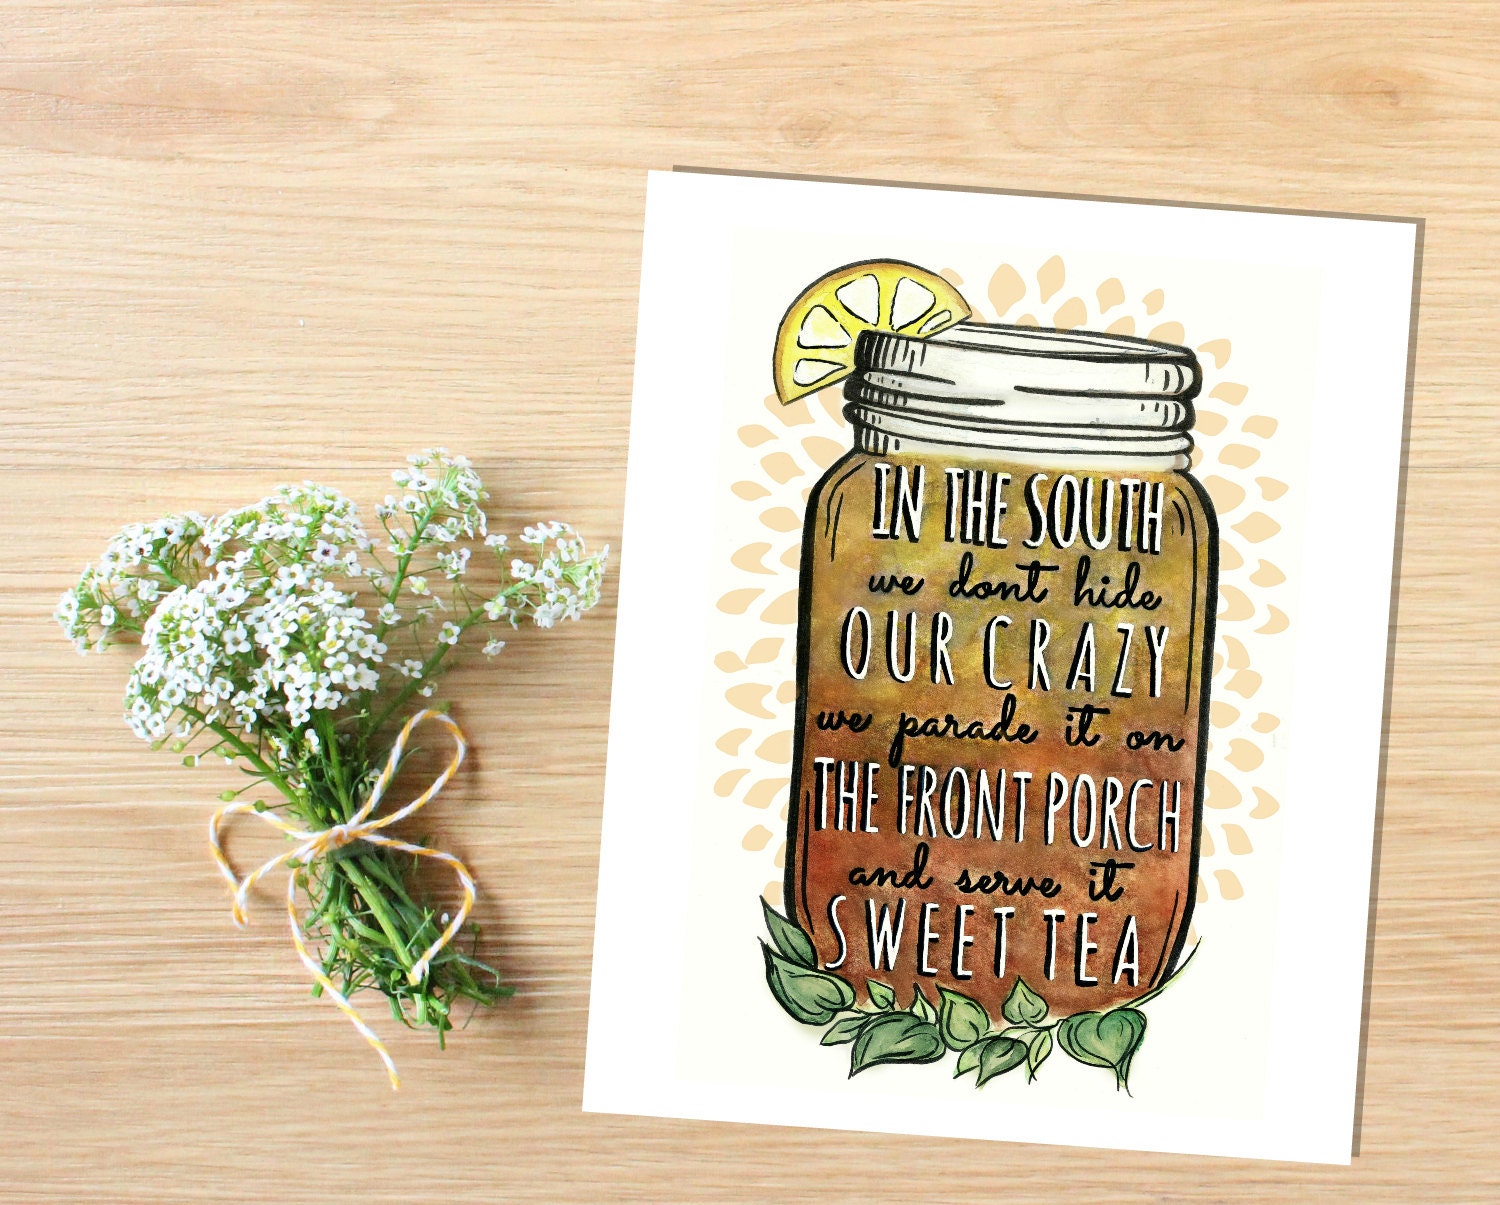 IN THE SOUTH
we dont hide
OUR CRAZY
we parade it on
THE FRONT PORCH
and serve it
SWEET TEA